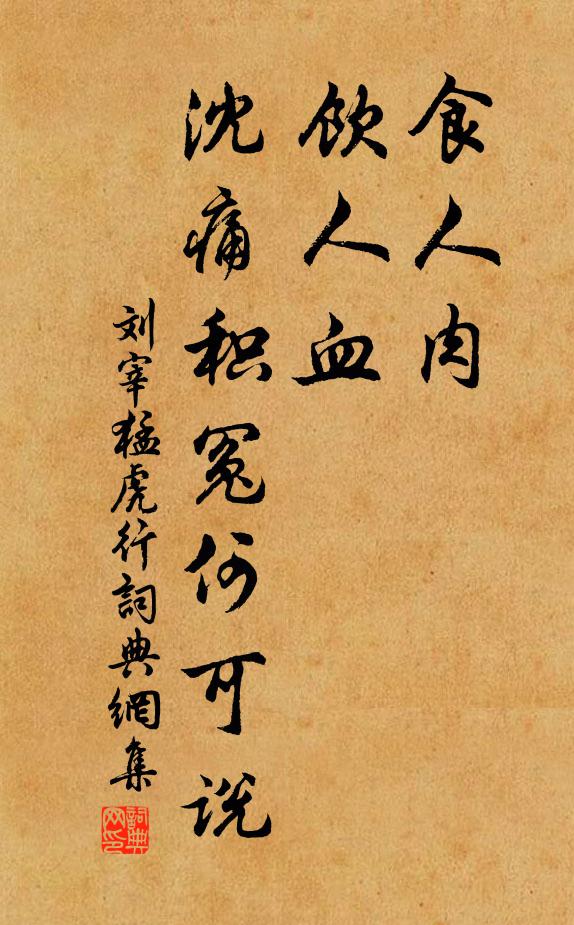 食人肉
飲人血
沈痛积冤何可说
刘宰猛虎行詞典網集
詞典网印